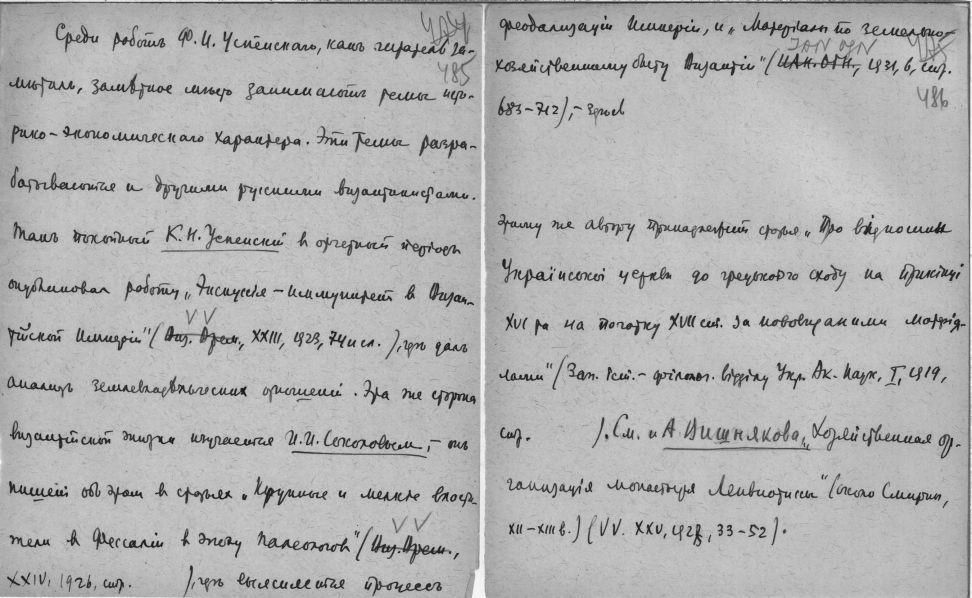 484
Среди работъ Ф. И. Успенскаго, какъ читатель за-
485
мѣтилъ, замѣтное мѣсто занимаютъ темы исто-
рико-экономическаго характера. Эти темы разра-
батываются и другими русскими византинистами.
Такъ покойный К. Н. Успенскій в отчетный періодъ
опубликовал работу „Экскуссія-иммунитет в Визан-
V V
тійской Имперіи" (Виз. Врем., XXIII, 1923, 74 и сл.), гдѣ далъ
анализъ землевладѣльческихъ отношеній. Эта же сторона
византійской жизни изучается И. И. Соколовымъ, – онъ
пишетъ объ этом в статьяхъ „Крупные и мелкіе власти-
V V
тели в Фессаліи в эпоху Палеологовъ" (Виз. Врем.,
XXIV, 1926, стр. ), гдѣ выясняется процессъ
484
феодализаціи Имперіи, и „Матеріалы по земельно-
IAN OGN
хозяйственному быту Византіи" (ИАН. ОГН., 1931, 6, стр.
486
683-712), –
этому же автору принадлежитъ статья „Про відносини
Української церкви до грецького сходу на прикінці
XVI та на початку XVII ст. за нововиданими матерія-
лами" (Зап. Іст.-філолог. відділу Укр. Ак. Наук, I, 1919,
стр. ). См. и А Вишнякова, „Хозяйственная ор-
ганизація монастыря Лемвиотиссы" (около Смирны,
XII-XIII в.) (VV. XXV, 1928, 33-52).